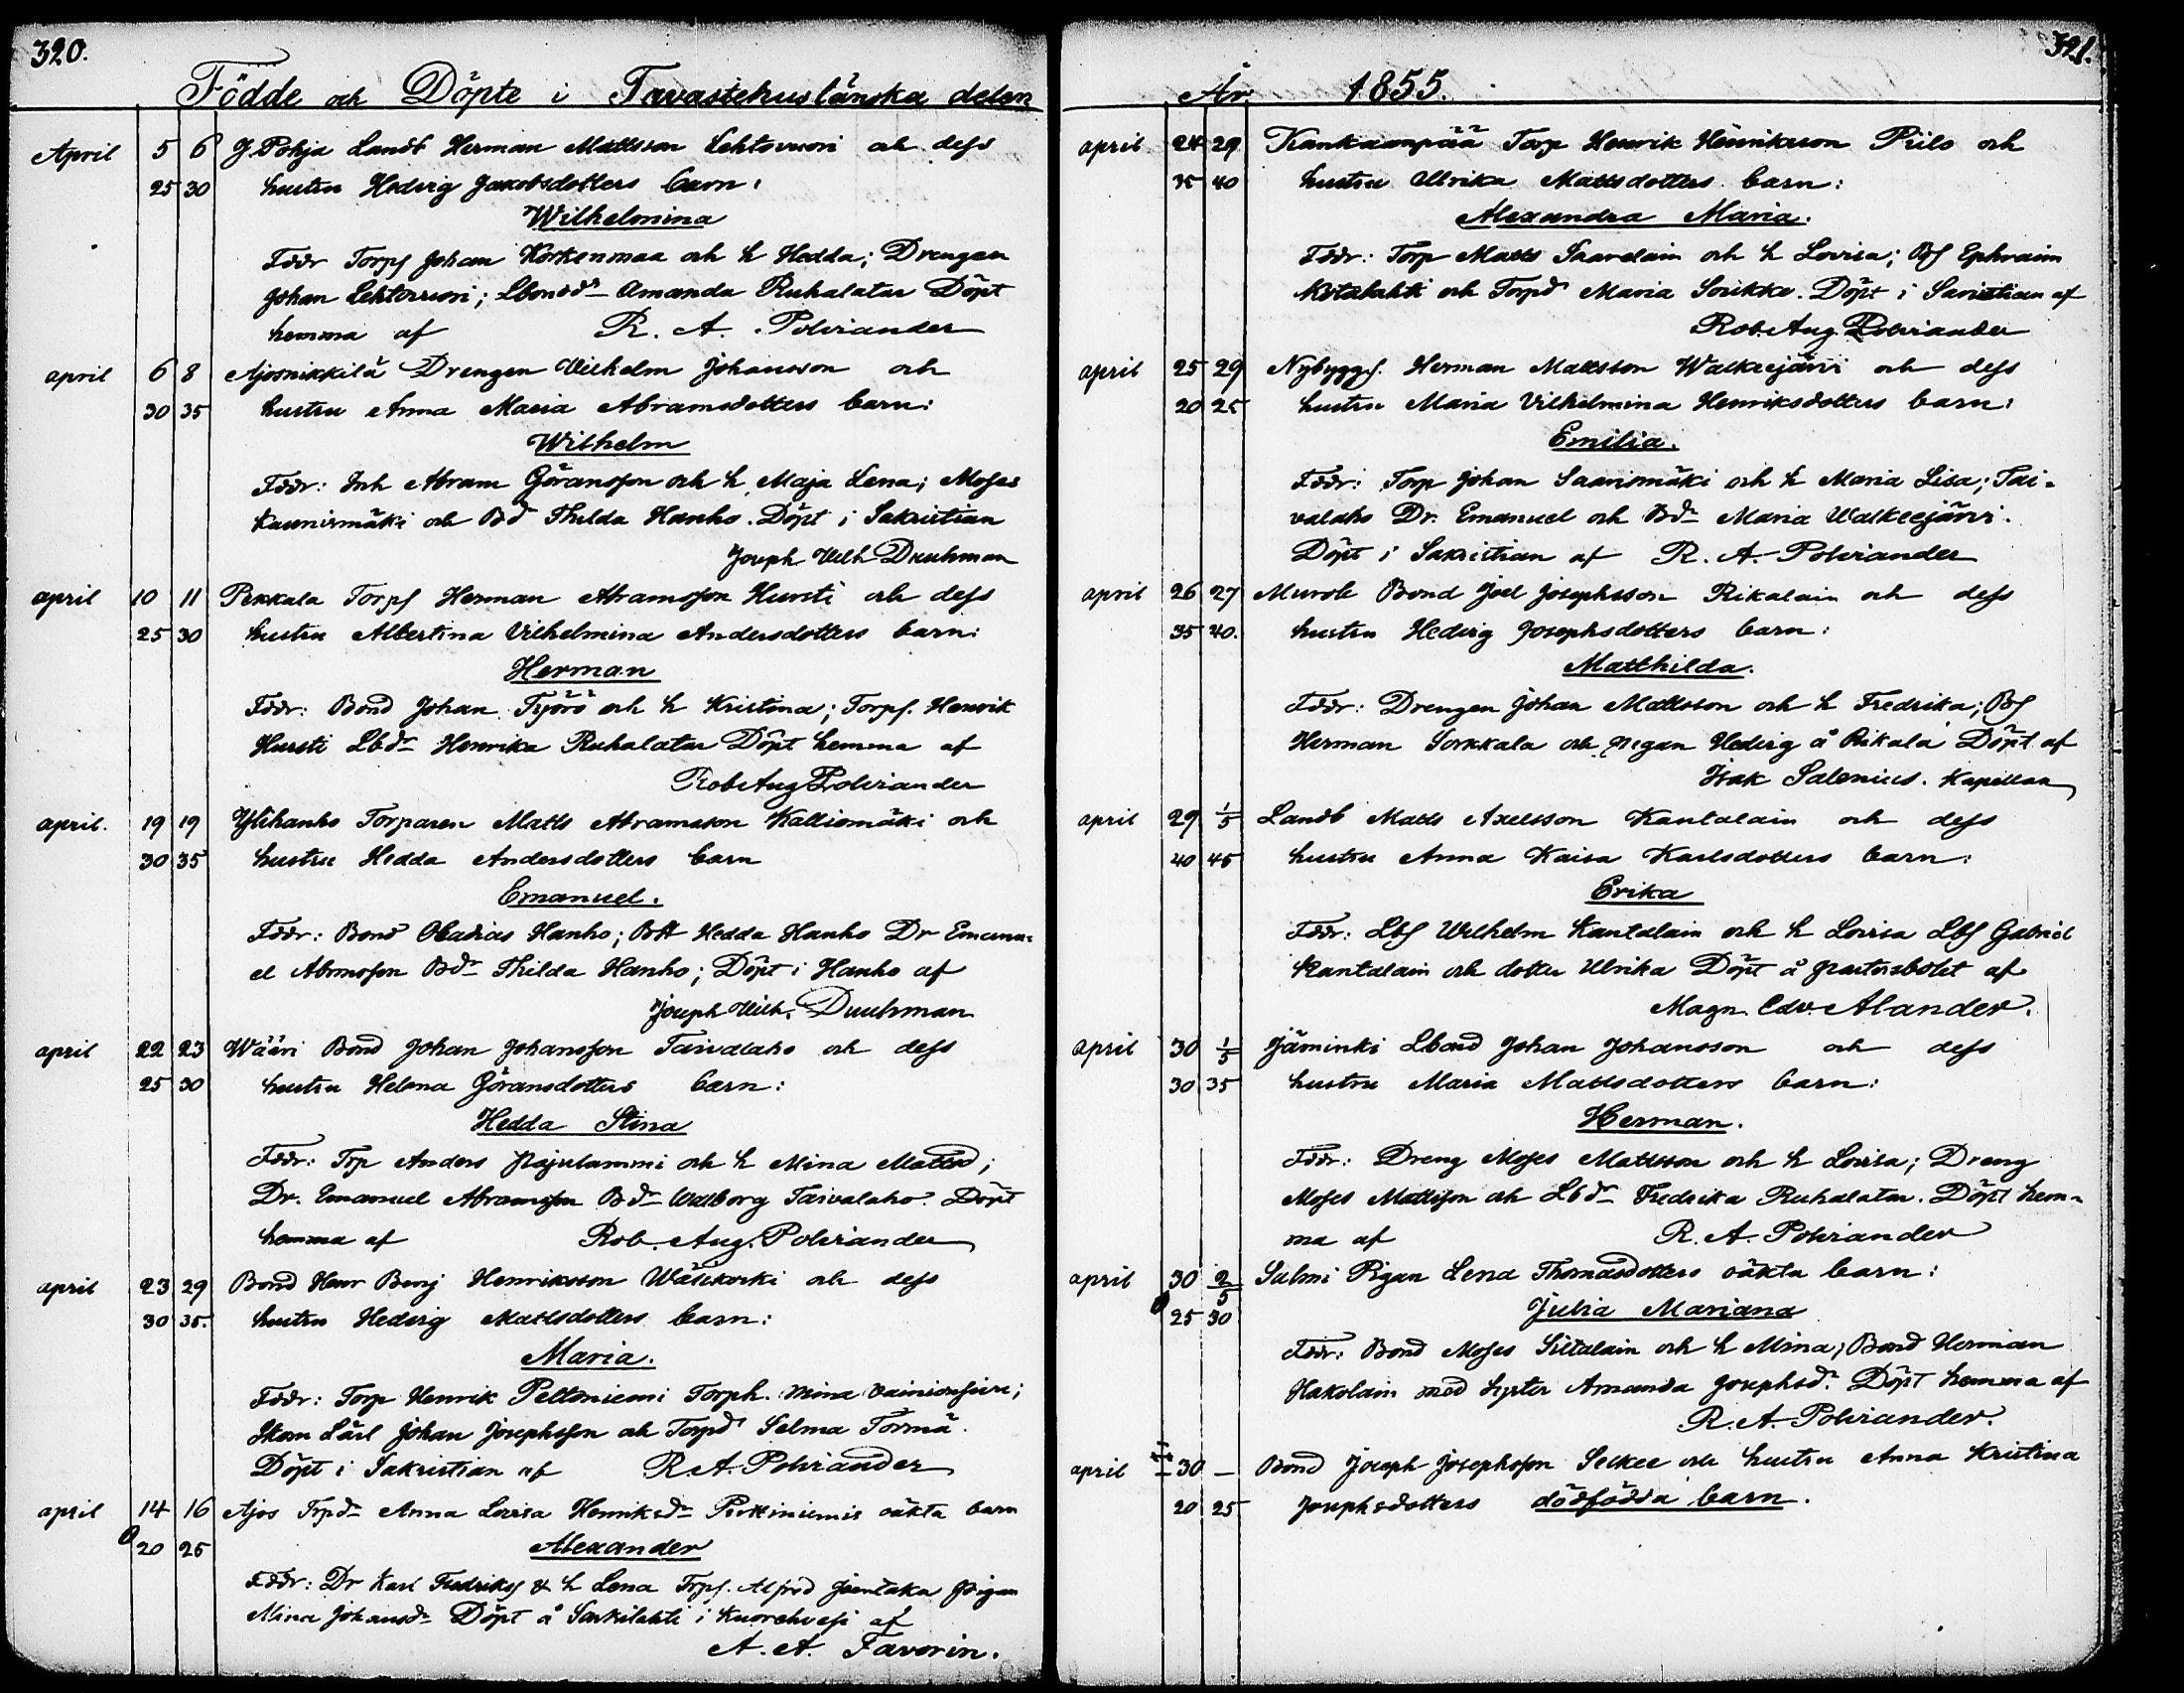 320.
Födde och Döpte i Tavastehuslänska delen
April 5 6 Y. Pohja Landb Herman Mattsson Lehtovuori och dess
25 30 hustru Hedvig Jacobsdotters barn:
Wilhelmina
Fddr Torps Johan Korkenmaa och h Hedda; Drengen
Johan Lehtovuori; Lbondd Amanda Ruhalatar Döpt
hemma af R. A. Polviander
april 6 8 Ajosnikkilä Drengen Vilhelm Johansson och
30 35 hustru Anna Maria Abramsdotters barn:
Wilhelm
Fddr: Inh Abram Göransson och h Maja Lena; Moses
Kaunismäki och Bd Thilda Hanho. Döpt i Sakristian
Joseph Wilh Duuhman
april 10 11 Pekkala Torps Herman Abramsson Hursti och dess
25 30 hustru Albertina Vilhelmina Andersdotters barn:
Herman
Fddr: Bond Johan och h Kristina; Torps. Henrik
Hursti Lbdr Henrika Ruhalatar Döpt hemma af
Rob Aug Polviander
april. 19 19 Ylihanho Torparen Matts Abramsson Kalliomäki och
30 35 hustru Hedda Andersdotters barn
Emanuel.
Fddr: Bond Obadias Hanho; Hedda Hanho Dr Emanu-
el Abrmsson Bdr Thilda Hanho; Döpt i Hanho af
Joseph Wilh. Duuhman
april 22 23 Wääri Bond Johan Johansson Taivalaho och dess
25 30 hustru Helena Göransdotters barn:
Hedda Stina
Fddr: Trp Anders Pajulammi och h Mina Mattsd;
Dr. Emanuel Abramsson Bdr Walborg Taivalaho. Döpt
hemma af Rob. Aug. Polviander
april 23 29 Bond Henr Benj Henriksson och dess
30 35. hustru Hedvig Mattsdotters barn:
Maria.
Fddr: Torp Henrik Peltoniemi Torph. Mina
Skom Lärl Johan Josephsson och Torpd Selma Tormä.
Döpt i Sakristian af R. A. Polviander
april 14 16 Ajos Trpdr Anna Lovisa Henriksdr oäkta barn
0 20 25 Alexander
Fddr: Dr Karl Fredrikss & h Lena Trps. Alfred Pigan
Mina Johansdr Döpt å Sarkilahti i Kuorehvesi af
A. A. Favorin.
321.
År 1855.
april 24 29 Kankaanpää Torp Henrik Henriksson Piilo och
35 40 hustru Ulrika Mattsdotters barn:
Alexandra Maria.
Fddr: Torp Matts Saarelain och h Lovisa; Bs Ephraim
Kotalahti och Torpd Maria Soukko. Döpt i af
Rob. Aug. Polviander
april 25 29 Nybyggs. Herman Mattsson Walkeejärvi och dess
20 25 hustru Maria Vilhelmina Henriksdotters barn:
Emilia.
Fddr: Torp Johan Saarismäki och h Maria Lisa; Tai-
valaho Dr. Emanuel och Bdr Maria Walkeejärvi.
Döpt i Sakristian af R. A. Polviander
april 26 27 Murole Bond Joel Josephsson Rikalain och dess
35 40. hustru Hedvig Josephsdotters barn:
Matthilda.
Fddr: Drengen Johan Mattsson och h Fredrika; Bs
Herman Sorkkala och pigan Hedvig å Rikala Döpt af
Isak Salenius. Kapellan
april 29 1/5 Landb Matts Axelsson Kantalain och dess
40 45 hustru Anna Kaisa Karlsdotters barn:
Erika
Fddr: Lbs Wilhelm Kantalain och h Lovisa Lbs Gabriel
Kantalain och dotter Ulrika Döpt å prestersbolet af
Magn. Edv. Alander.
april 30 1/5 Jäminki Lbond Johan Johansson och dess
30 35 hustru Maria Mattsdotters barn:
Herman.
Fddr: Dreng Moses Mattsson och h Lovisa; Dreng
Moses Mattsson och Lbdr Fredrika Ruhalatar. Döpt hem-
ma af R. A. Polviander
april 30 2/5 Salmi Pigan Lena Thomasdotters oäkta barn:
0 25 30 Julia Mariana
Fddr: Bond Moses Siltalain och h Mina; Bond Herman
Hakolain med syster Amanda Josephsdr. Döpt hemma af
R. A. Polviander.
april 30 – Bond Joseph Josephsson Selkee och hustru Anna Kristina
20 25 Josephsdotters dödfödda barn.